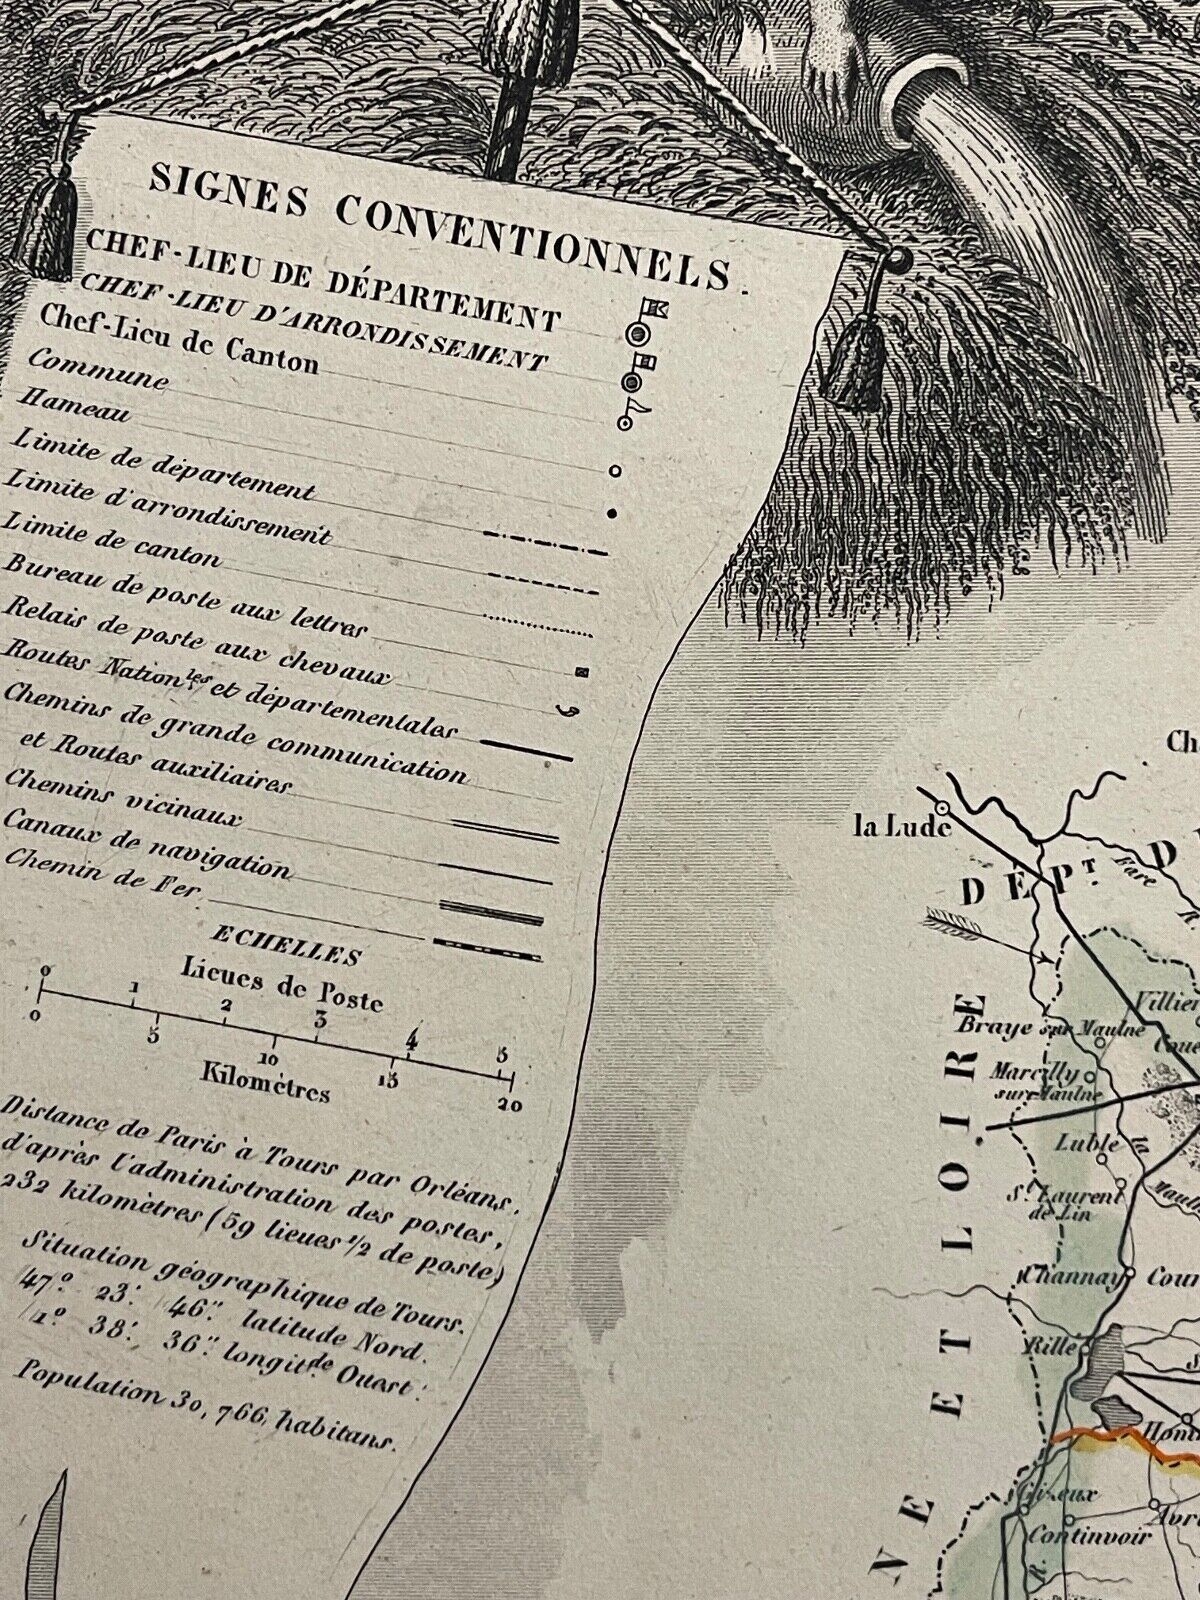 SIGNES CONVENTIONNELS.
CHEF-LIEU DE DÉPARTEMENT
CHEF-LIEU D'ARRONDISSEMENT
Chef-Lieu de Canton
Commune
Hameau
Limite de département
Limite d'arrondissement
Limite de canton
Bureau de poste aux lettres
Relais de poste aux chevaux
Routes Nation.les et départementales
Chemins de grande communication
et Routes auxiliaires
Chemins vicinaux
Canaux de navigation
Chemin de Fer
ECHELLES
Lieues de Poste
0 1 2 3 4 5
0 5 10 15 20
Kilomètres
Distance de Paris à Tours par Orléans,
d'après l'administration des postes,
232 kilomètres (59 lieues 1/2 de poste)
Situation géographique de Tours.
47° 23' 46" latitude Nord.
1° 38' 36" longit.de Ouest.
Population 30,766, habitans.
Ch
la Lude
DÉPT. D
Fare
R.
Villier
Braye sur Maulne
Coue
Marcilly
sur Maulne
Lublé
la
St. Laurent
de Lin
Maul
Channay
Cour
Rillé
Hom
NE ET LOIRE
Gizeux
Avri
Continvoir
R.